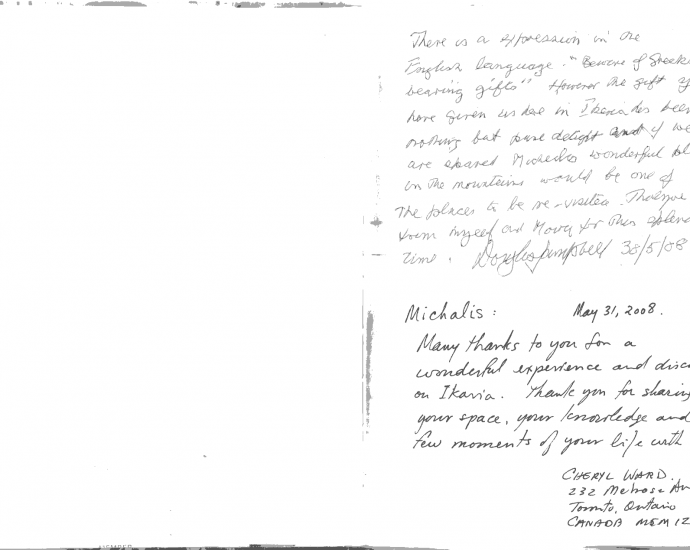 There is a expression in the
English language. "Beware of Greeks
bearing gifts" However the gift
have given us here in Ikaria has been
nothing but pure delight and if we
are spared wonderful
in the mountains would be one of
The places to be re-visited. Thank you
from myself and for this
time. Douglas Campbell 30/5/08
Michalis: May 31, 2008.
Many thanks to you for a
wonderful experience and disc
on Ikaria. Thank you for sharing
your space, your knowledge and
few moments of your life with
CHERYL WARD.
232 Melrose Av
Toronto, Ontario
CANADA M5M 1Z